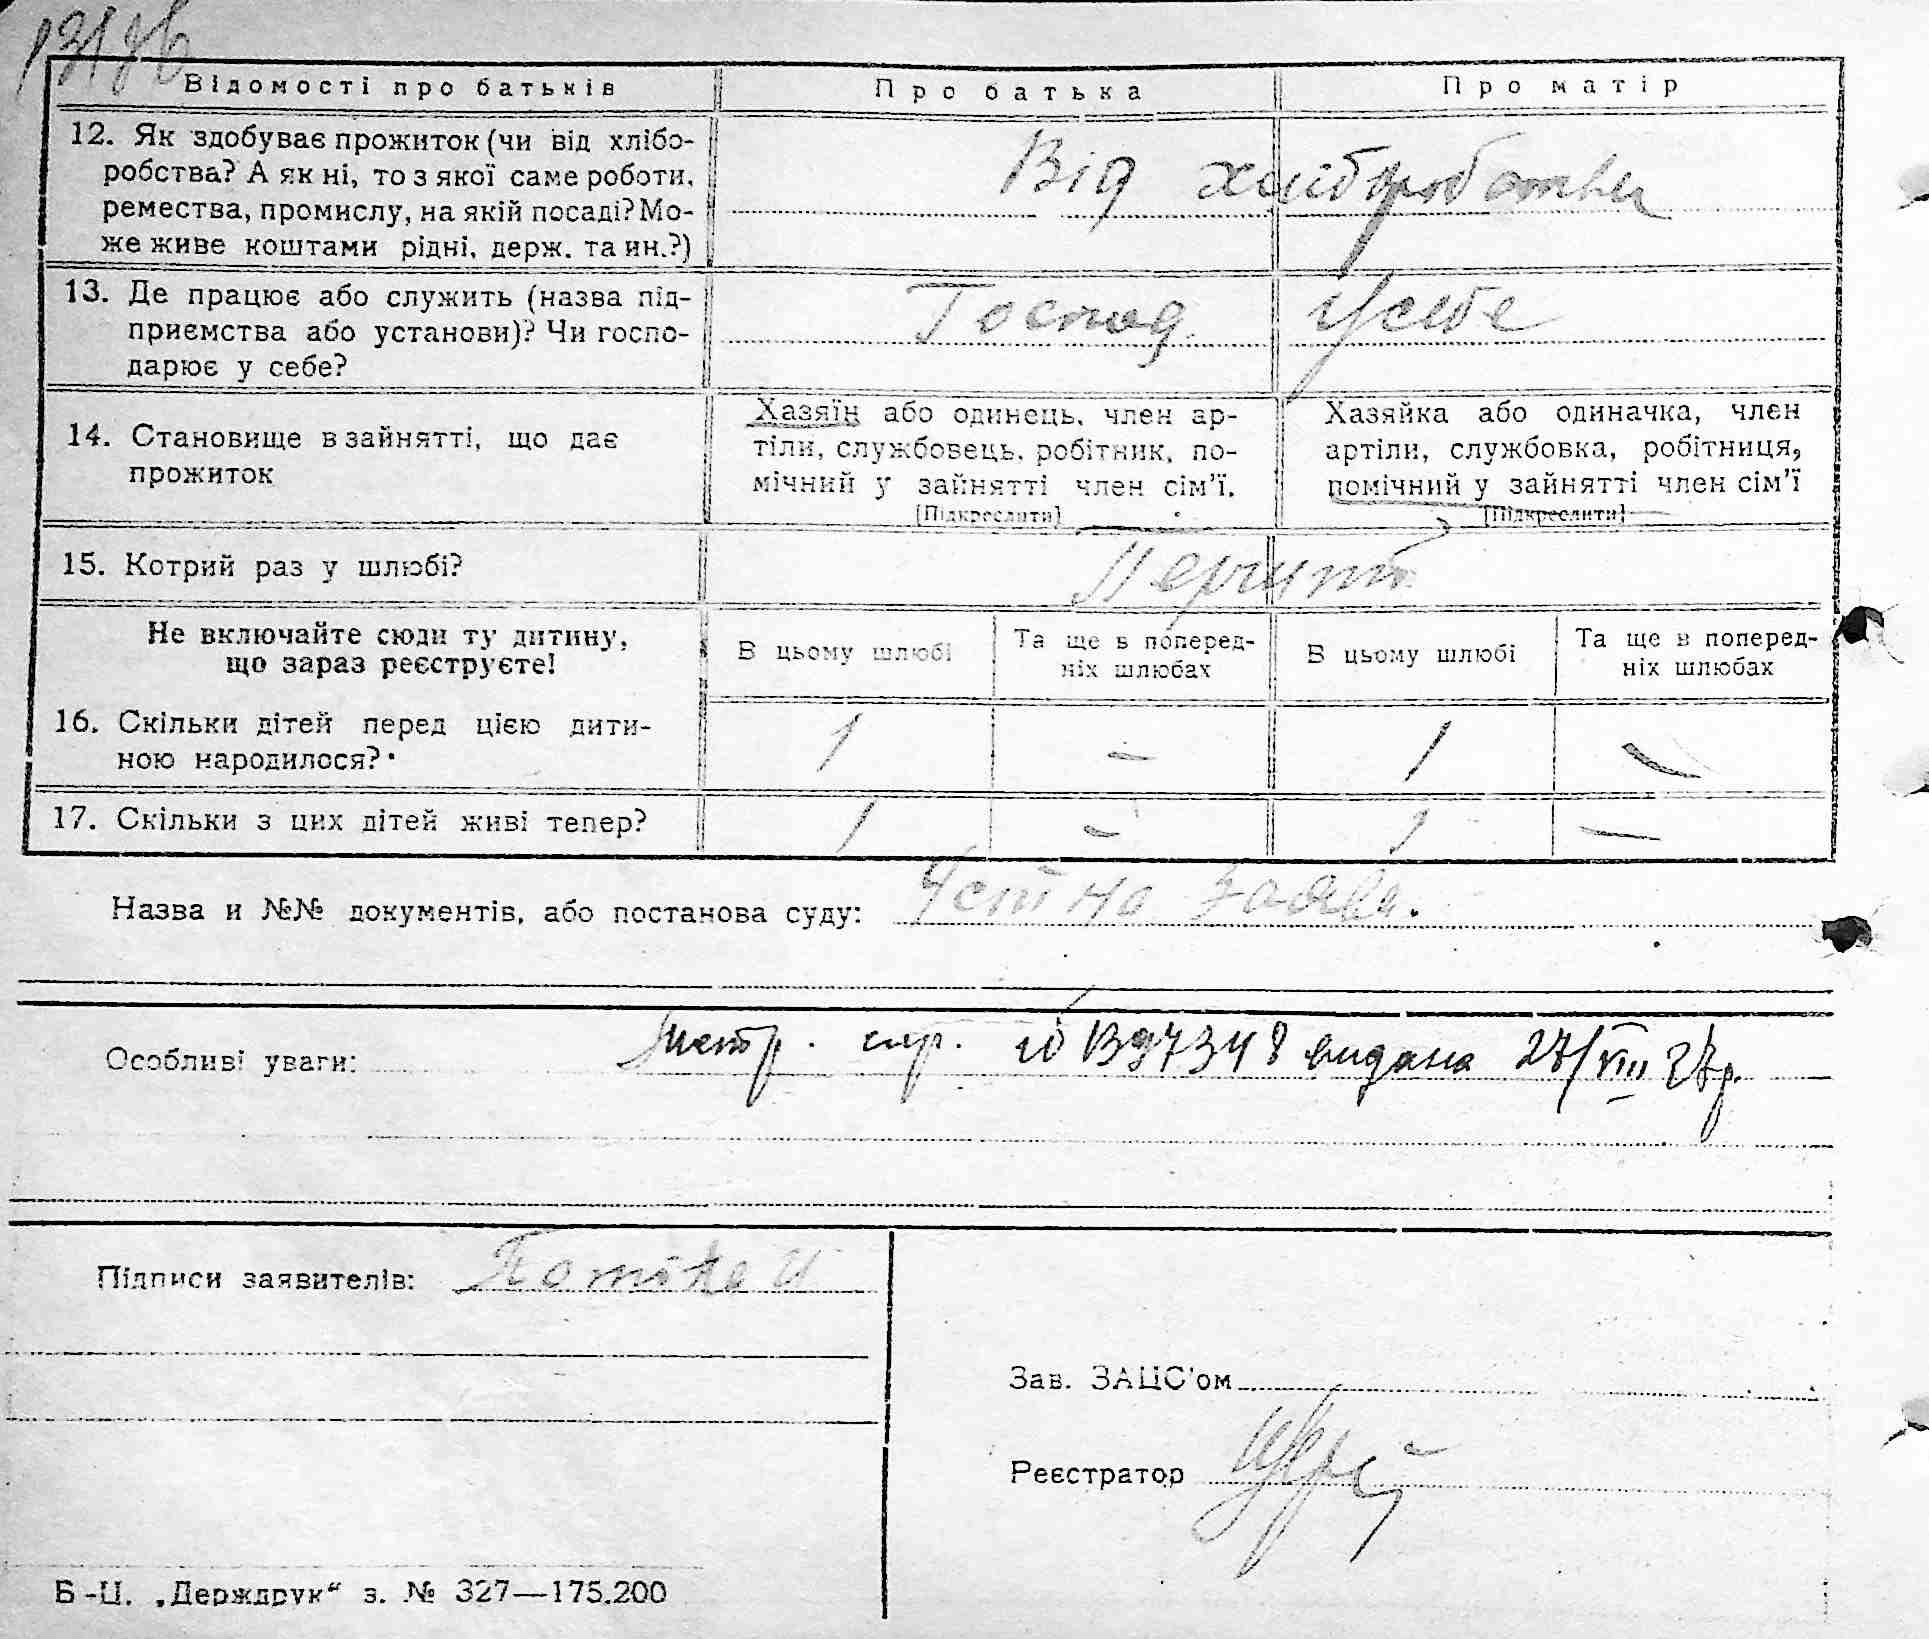 Відомості про батьків Про батька Про матір
12. Як здобуває прожиток (чи від хлібо-
робства? А як ні, то з якої саме роботи,
ремества, промислу, на якій посаді? Мо-
же живе коштами рідні, держ. та ин.?)
Від хліборобства
13. Де працює або служить (назва під-
приємства або установи)? Чи госпо-
дарює у себе?
Господ. у себе
14. Становище в зайнятті, що дає
прожиток
Хазяїн або одинець, член ар-
тіли, службовець, робітник, по-
мічний у зайнятті член сім'ї.
[Підкреслити]
Хазяйка або одиначка, член
артіли, службовка, робітниця,
помічний у зайнятті член сім'ї
[Підкреслити]
15. Котрий раз у шлюбі?
Перший
Не включайте сюди ту дитину,
що зараз реєструєте!
В цьому шлюбі
Та ще в поперед-
ніх шлюбах
В цьому шлюбі
Та ще в поперед-
ніх шлюбах
16. Скільки дітей перед цією дити-
ною народилося?
1 — 1 —
17. Скільки з цих дітей живі тепер?
1 — 1 —
Назва и №№ документів, або постанова суду: Устна заява.
Особливі уваги: метр. спр. 97348 видана 27/VIII 27р.
Підписи заявителів:
Зав. ЗАЦС'ом
Реєстратор
Б-Ц. „Держдрук“ з. № 327—175.200